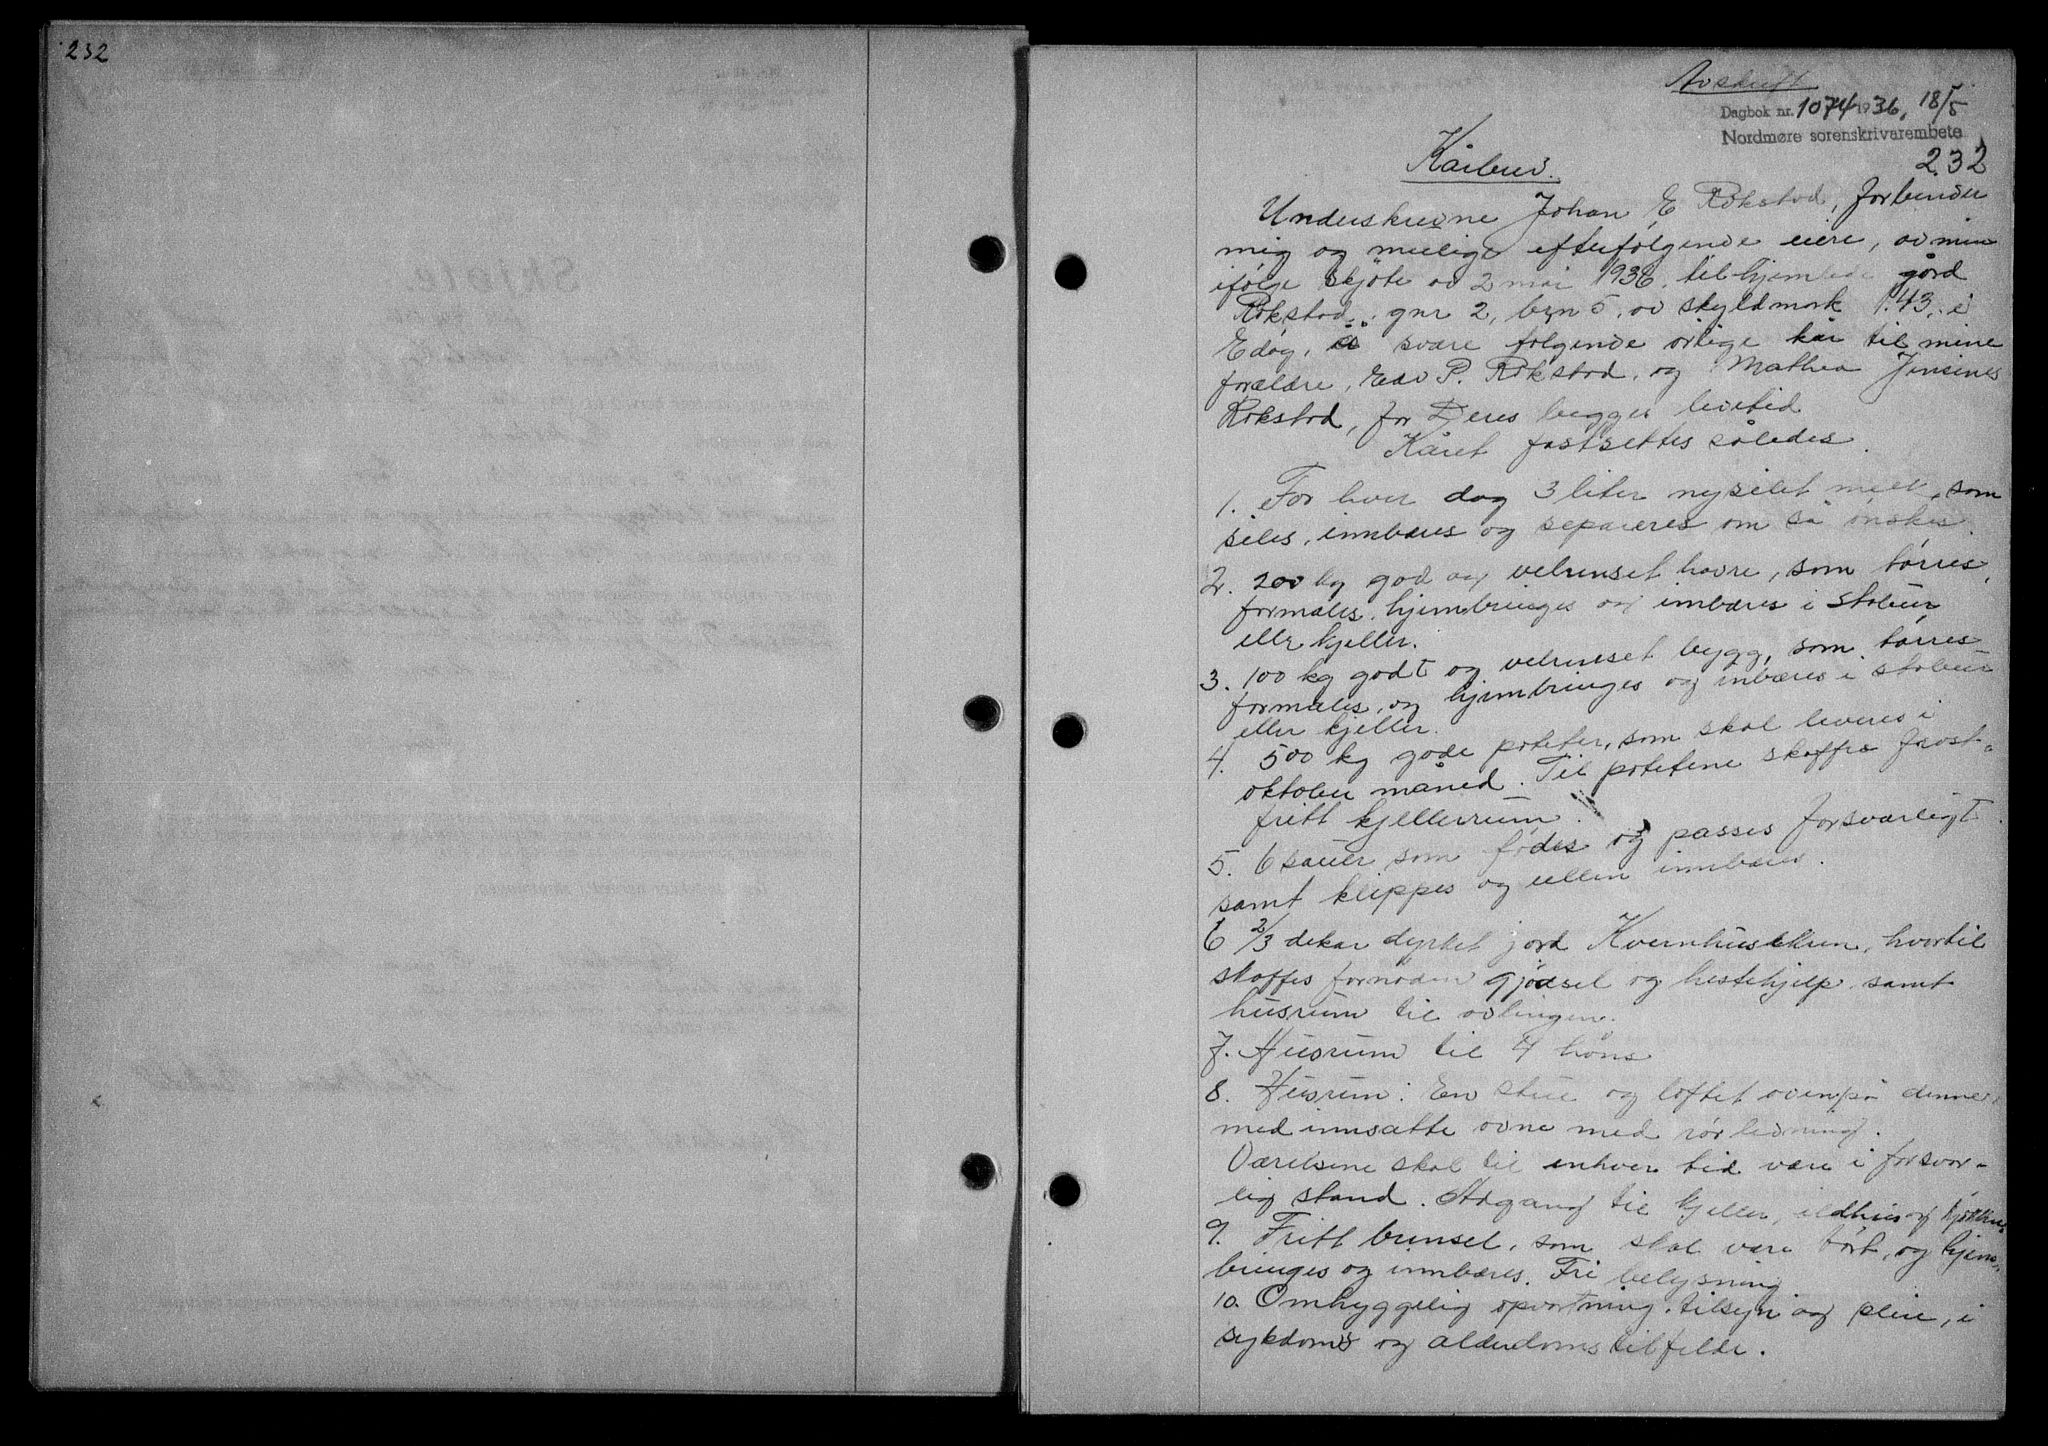 232
Avskrift
Dagbok nr. 1074 1936, 18/5
Nordmøre sorenskrivarembete
232
Kårbrev.
Underskrevne Johan E Rokstad, forbinder
mig og mulige efterfølgende eiere, av min
ifølge skjöte av 2 mai 1936, tilhjemlede gård
Rokstad, gnr 2, brn 5, av skyldmark 1.43, i
Edøy, å svare følgende årlige kår til mine
forældre, Edv P. Rokstad, og Mathea Jensines
Rokstad, for Deres begges levetid
Kåret fastsettes således.
1. For hver dag 3 liter nysilet melk, som
siles, innbæres og separeres om så ønskes
2. 200 kg god og velrenset havre, som tørres,
formales, hjembringes og innbæres i stabur
eller kjeller.
3. 100 kg godt og velrenset bygg, som tørres
formales, og hjembringes og inbæres i stabur
eller kjeller.
4. 500 kg gode poteter, som skal leveres i
oktober måned. Til potetene skaffes frost-
fritt kjellerrum.
5. 6 sauer som fødes og passes forsvarligt
samt klippes og ullen innbæres.
6 2/3 dekar dyrket jord Kvernhusekren, hvortil
skaffes fornøden gjødsel og hestehjelp samt
husrum til avlingen.
7. Husrum til 4 høns
8. Husrum: En stue og loftet ovenpå denne,
med innsatte ovne med rørledning.
Værelsene skal til enhver tid være i forsvar-
lig stand. Adgang til kjeller, ildhus og
9. Fritt brensel, som skal være tørt, og hjem-
bringes og innbæres. Fri belysning
10. Omhyggelig opvartning, tilsyn og pleie, i
sykdoms og alderdomstilfelde.